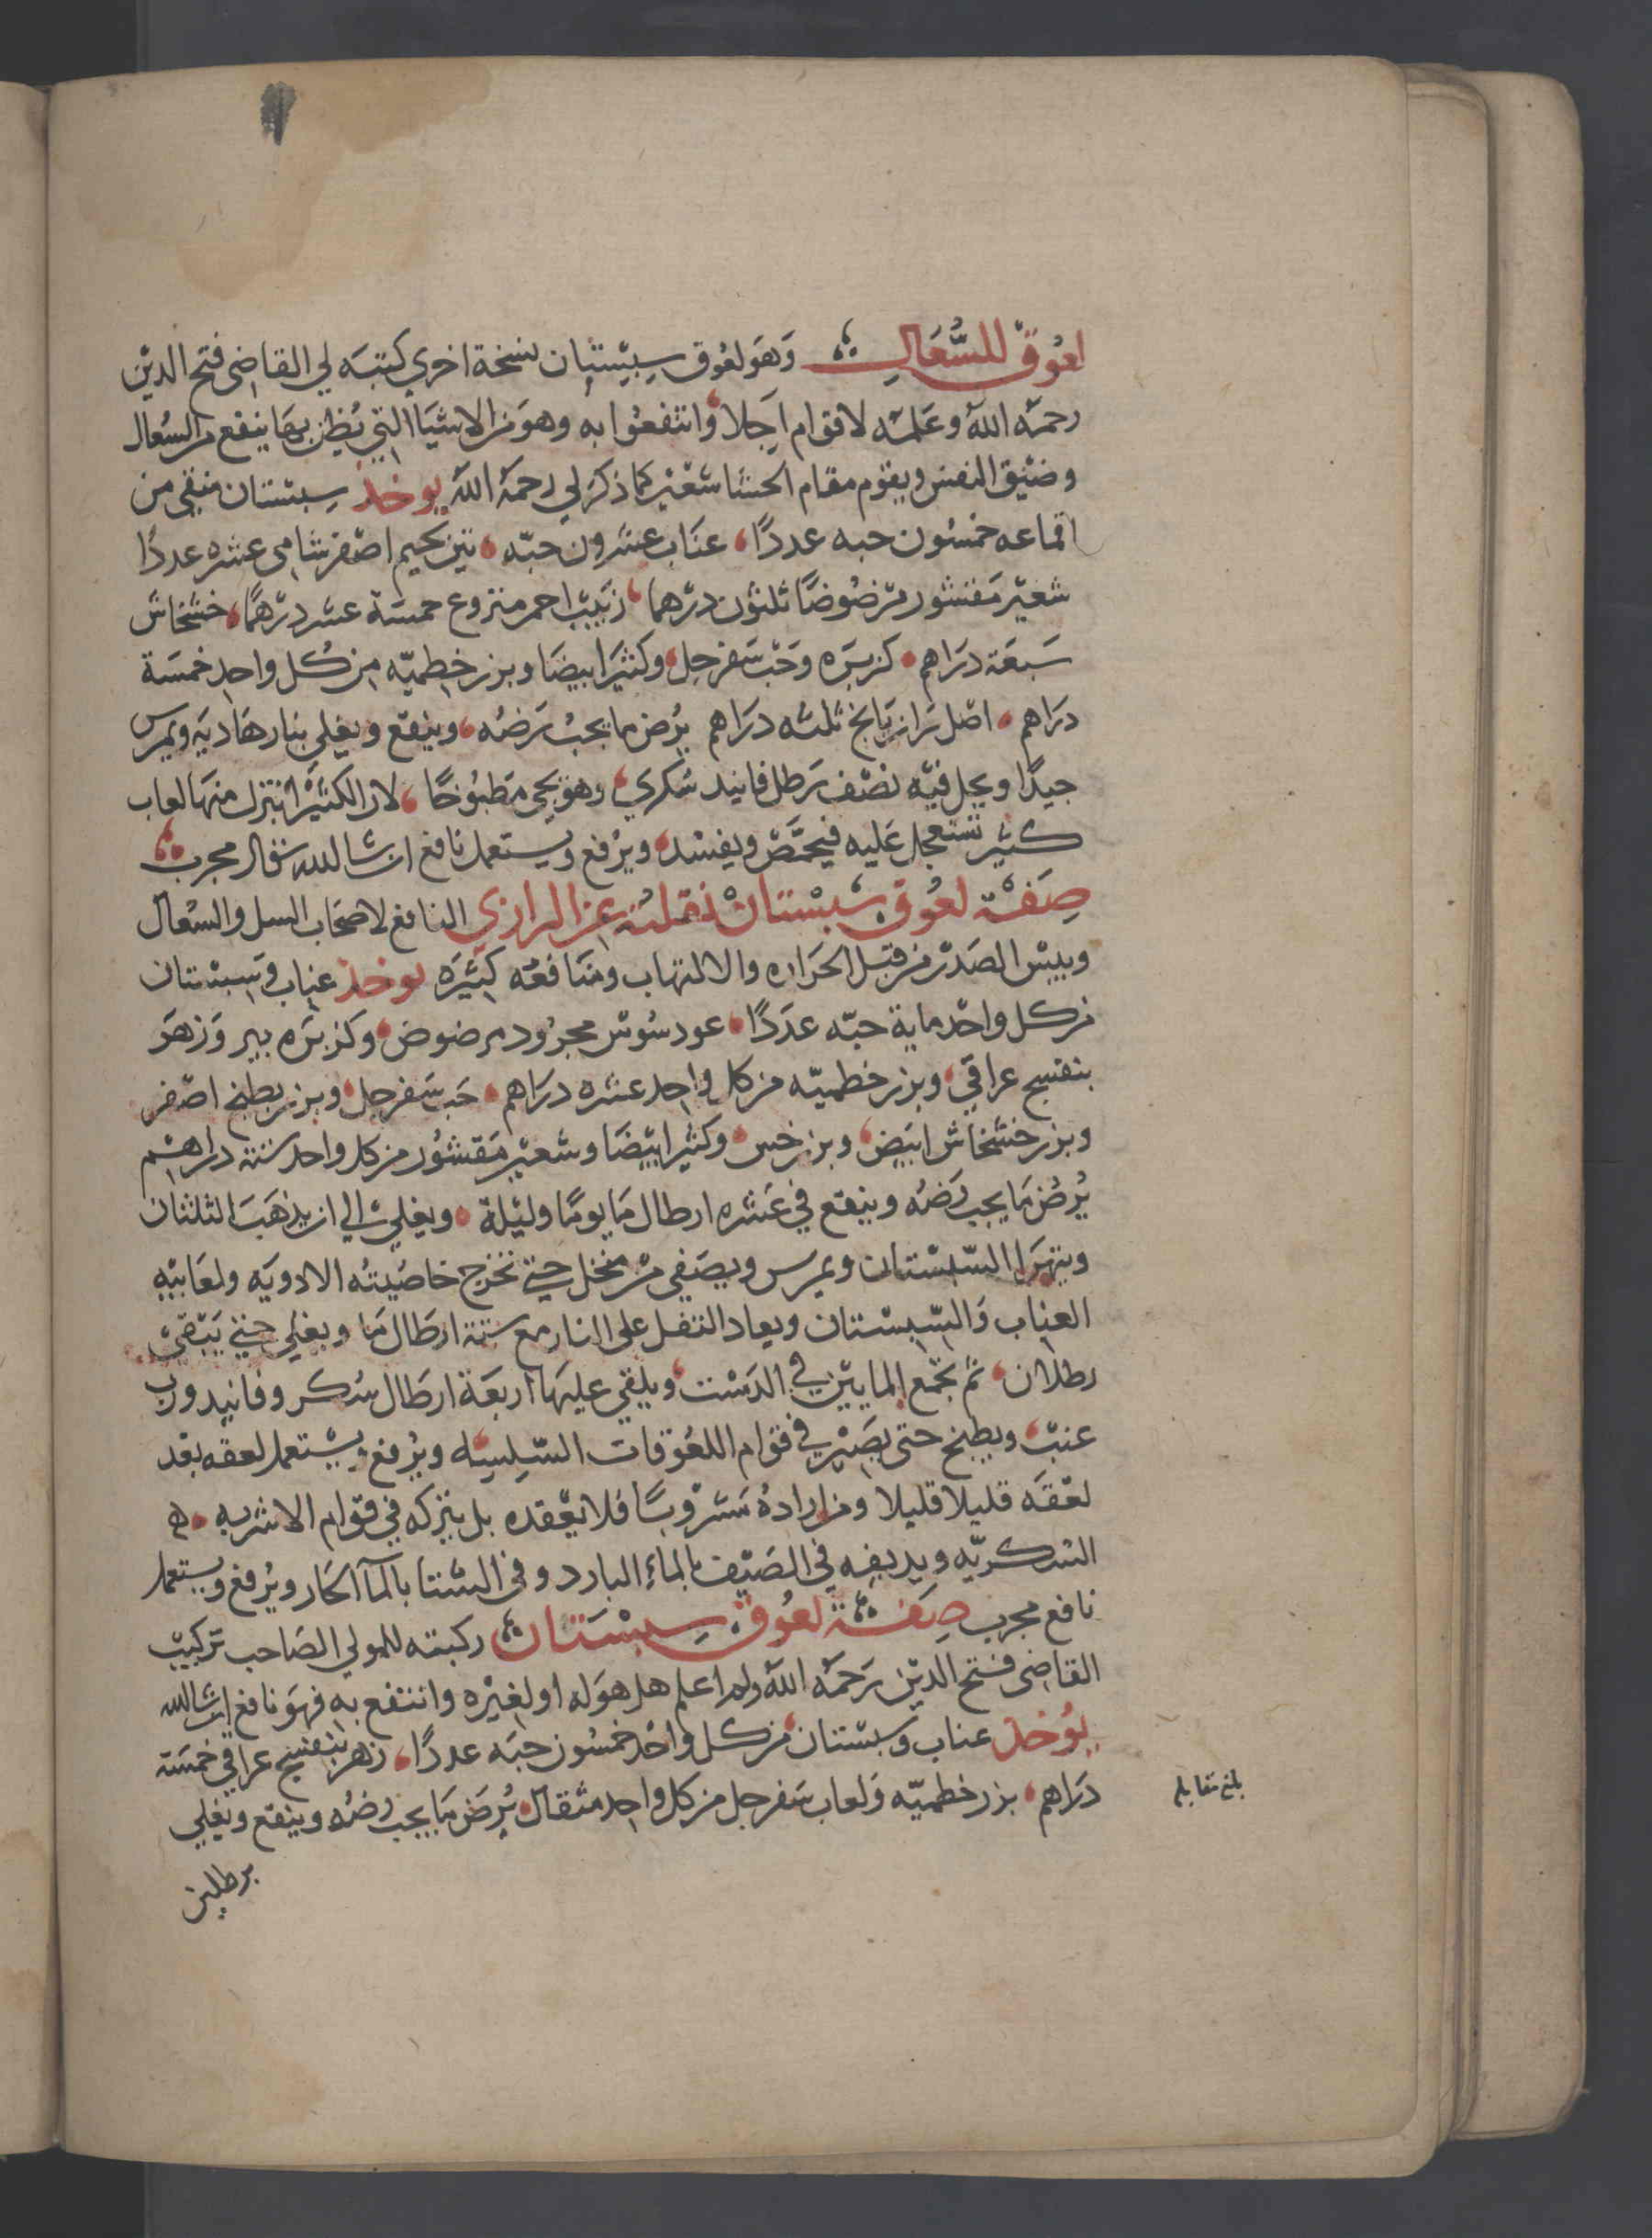 لعوق للسعال وهو لعوق سبستان نسخة اخري كتبه لي القاضي فتح الدين
رحمه الله وعمله لاقوام اجلا وانتفعوا به وهو من الاشيا التي يظن بها ينفع من السعال
وضيق النفس ويقوم مقام الحسا شعير كما ذكر لي رحمه الله يوخذ سبستان منقي من
اقماعه خمسون حبه عددًا عناب عشرون حبه تين لحيم اصفر شامي عشره عددًا
شعير مقشور مرضوضًا ثلثون درهما زبيب احمر منزوع خمسة عشر درهمًا خشخاش
سبعة دراهم كزبره وحب سفرجل وكثيرا بيضا وبزر خطميه من كل واحد خمسة
دراهم اصل رازيانج ثلثه دراهم يرض ما يجب رضه وينقع ويغلي بنار هاديه ويمرس
جيدًا ويحل فيه نصف رطل فانيد سكري وهو يجي مطبوخًا لان الكثيرا ينزل منها لعاب
كثير تستعجل عليه فيحمض ويفسد ويرفع ويستعمل نافع ان شا الله تعالى مجرب
صفة لعوق سبستان نقلته عن الرازي النافع لاصحاب السل والسعال
ويبس الصدر من قبل الحراره والالتهاب ومنافعه كثيره يوخذ عناب وسبستان
من كل واحد ماية حبه عددًا عود سوس مجرود مرضوض وكزبره بير وزهر
بنفسج عراقي وبزر خطميه من كل واحد عشره دراهم حب سفرجل وبزر بطيخ اصفر
وبزر خشخاش ابيض وبزر خس وكثيرا بيضا وشعير مقشور من كل واحد ستة دراهم
يرض ما يجب رضه وينقع في عشره ارطال ما يومًا وليلة ويغلي الي ان يذهب الثلثان
ويتهرا السبستان ويمرس ويصفي من منخل حتي تخرج خاصيته الادويه ولعابيه
العناب والسبستان ويعاد الثفل على النار مع ستة ارطال ما ويغلي حتي يبقي
رطلان ثم يجمع المايين في الدست ويلقي عليها اربعة ارطال سكر وفانيد ورب
عنب ويطبخ حتى يصير في قوام اللعوقات السلسه ويرفع ويستعمل لعقه بعد
لعقه قليلا قليلا ومن اراده مشروبًا فلا يعقده بل يتركه في قوام الاشربه
السكريه ويديفه في الصيف بالماء البارد وفي الشتا بالمآ الحار ويرفع ويستعمل
نافع مجرب صفة لعوق سبستان ركبته للمولي الصاحب تركيب
القاضي فتح الدين رحمه الله ولم اعلم هل هو له او لغيره وانتفع به فهو نافع ان شا الله
يوخذ عناب وسبستان من كل واحد خمسون حبه عددًا زهر بنفسج عراقي خمسة
دراهم بزر خطميه ولعاب سفرجل من كل واحد مثقال يرض ما يجب رضه وينقع ويغلي
برطلين
بلغ مقابله